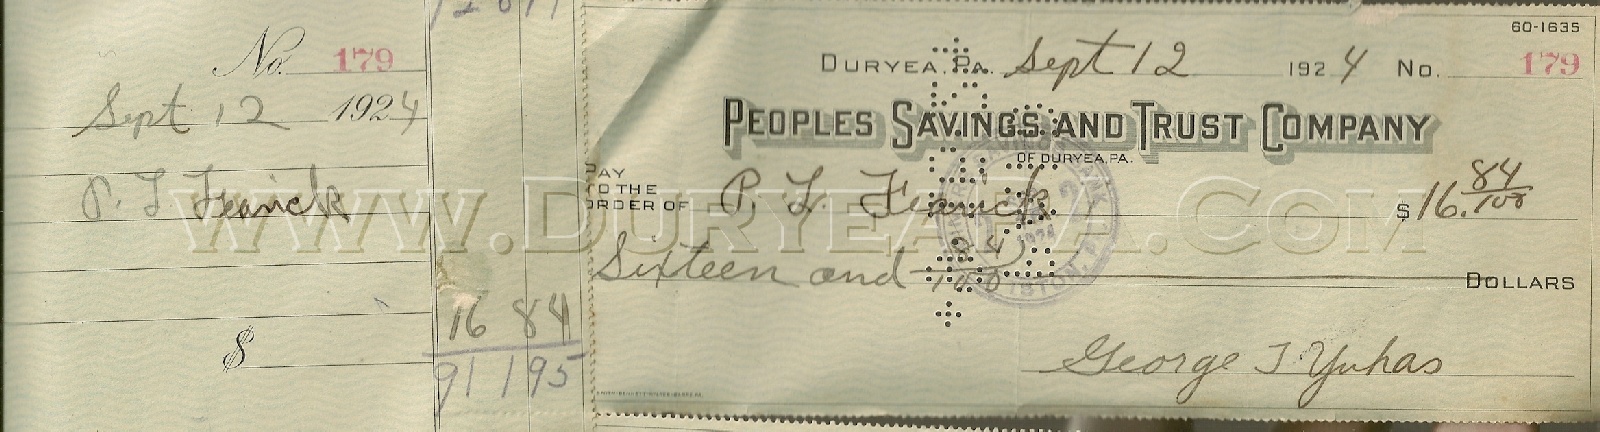 No. 179
Sept 12 1924
P. L Fearick
$
16 84
91 195
60-1635
DURYEA, PA. Sept 12 1924 No. 179
PEOPLES SAVINGS AND TRUST COMPANY
OF DURYEA, PA.
PAY
TO THE
ORDER OF P. L Fearick $16. 84/100
Sixteen and 84/100 DOLLARS
George J Yuhas
WWW.DURYEAPA.COM